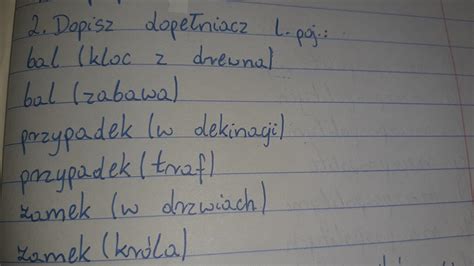 2. Dopisz dopełniacz l. poj.:
bal (kloc z drewna)
bal (zabawa)
przypadek (w deklinagi)
przypadek (traf)
zamek (w drzwiach)
zamek (króla)